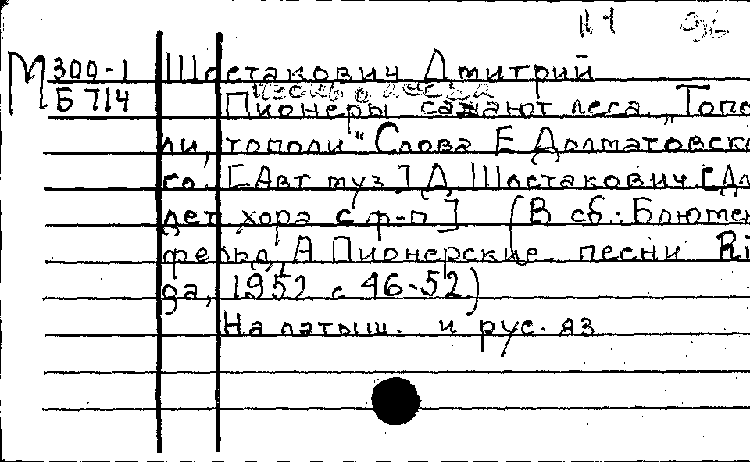 М 300-1 Шостакович Дмитрий
Б 714 Пионеры сажают леса. „Топо
ли, тополи" Слова Е Долматовско
го. [Авт муз.] Д. Шостакович. [Для
дет хора с ф-п] (В сб.: Блюмен
фельд, А Пионерские песни Ri
ga, 1952 с 46-52)
На латыш. и рус. яз